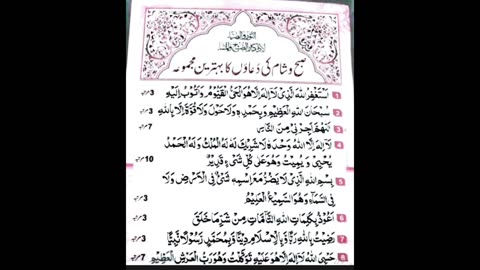 صبح و شام کی دعاؤں کا بہترین مجموعہ
1 نَسْتَغْفِرُ اللهَ الَّذِىْ لَآ اِلٰهَ اِلَّا هُوَ الْحَىُّ الْقَيُّوْمُ وَاَتُوْبُ اِلَيْهِ 3 مرتبہ
2 سُبْحَانَ اللهِ الْعَظِيْمِ وَبِحَمْدِهٖ وَلَا حَوْلَ وَلَا قُوَّةَ اِلَّا بِاللهِ 3 مرتبہ
3 اَللّٰهُمَّ اَجِرْنِىْ مِنَ النَّارِ 7 مرتبہ
4 لَآ اِلٰهَ اِلَّا اللهُ وَحْدَهٗ لَا شَرِيْكَ لَهٗ لَهُ الْمُلْكُ وَلَهُ الْحَمْدُ
يُحْيِىْ وَ يُمِيْتُ وَهُوَ عَلٰى كُلِّ شَىْءٍ قَدِيْرٌ 10 مرتبہ
5 بِسْمِ اللهِ الَّذِىْ لَا يَضُرُّ مَعَ اسْمِهٖ شَىْءٌ فِى الْاَرْضِ وَلَا
فِى السَّمَآءِ وَهُوَ السَّمِيْعُ الْعَلِيْمُ 3 مرتبہ
6 اَعُوْذُ بِكَلِمَاتِ اللهِ التَّآمَّاتِ مِنْ شَرِّ مَا خَلَقَ 3 مرتبہ
7 رَضِيْتُ بِاللهِ رَبًّا وَّ بِالْاِسْلَامِ دِيْنًا وَّ بِمُحَمَّدٍ رَسُوْلًا نَّبِيًّا 3 مرتبہ
8 حَسْبِىَ اللهُ لَآ اِلٰهَ اِلَّا هُوَ عَلَيْهِ تَوَكَّلْتُ وَهُوَ رَبُّ الْعَرْشِ الْعَظِيْمِ 7 مرتبہ